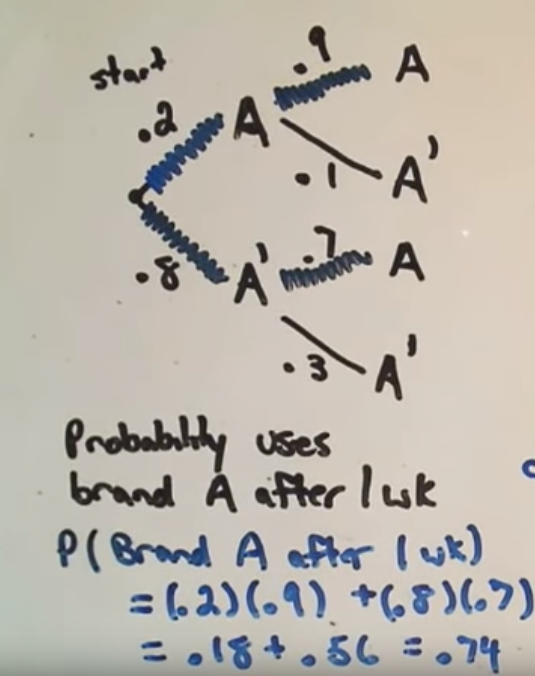 start
.9
A
.2
A
.1
A'
.7
A
.8
A'
.3
A'
Probability uses
brand A after 1 wk
P(Brand A after 1 wk)
=(.2)(.9) +(.8)(.7)
= .18 + .56 = .74